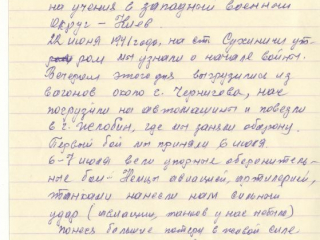 на учения в западный военный
округ – Киев.
22 июня 1941 года, на ст. Сухиничи ут-
ром мы узнали о начале войны.
Вечером этого дня выгрузились из
вагонов около г. Чернигова, нас
погрузили на автомашины и повезли
в г. Жлобин, где мы заняли оборону.
Первый бой мы приняли 6 июля.
6-7 июля вели упорные оборонитель-
ные бои - Немцы авиацией, артилерией,
танками нанесли нам сильный
удар (авиации, танков у нас небыло)
Понеся большие потери в живой силе